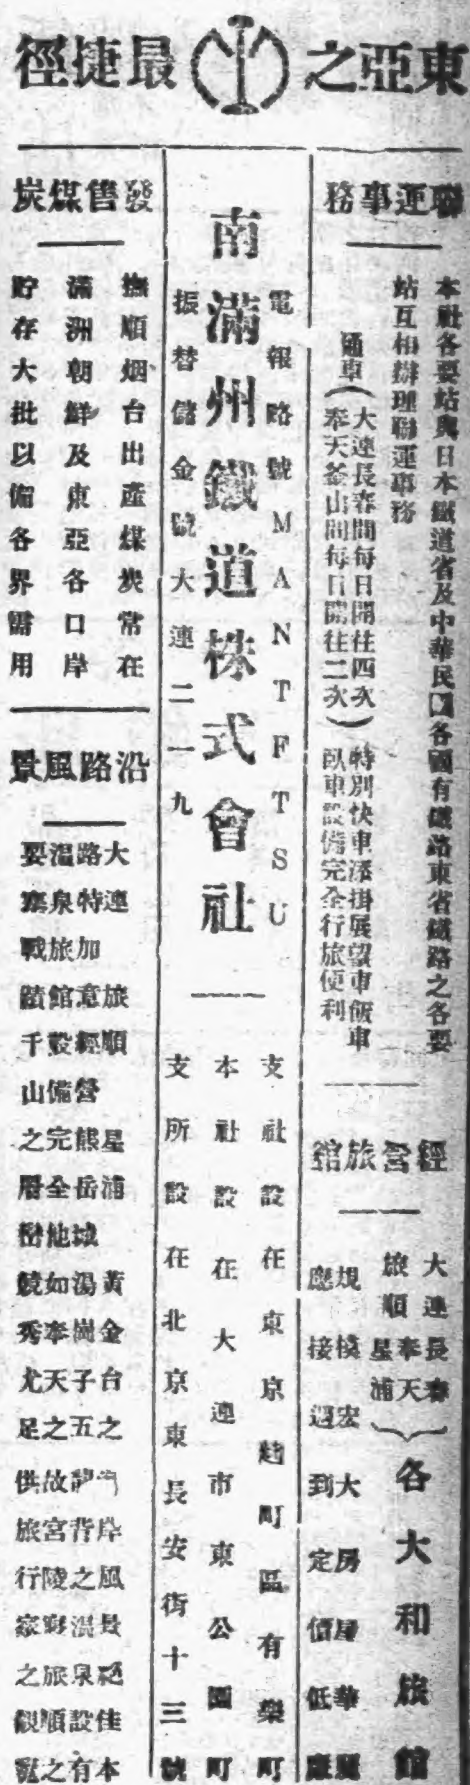 東亞之最捷徑
聯運事務
本社各要站與日本鐵道省及中華民國各國有鐵路東省鐵路之各要
站互相辦理聯運事務
通車(大連長春間每日開往四次
奉天釜山間每日開往二次)
特別快車添掛展望車飯車
臥車設備完全行旅便利
經營旅館
大連長春
旅順奉天
星浦
各大和旅館
規模宏大房屋華麗
應接週到定價低廉
電報略號MANTETSU
南滿州鐵道株式會社
振替儲金號大連二一九
支社設在東京麴町區有樂町
本社設在大連市東公園町
支所設在北京東長安街十三號
發售煤炭
撫順烟台出產煤炭常在
滿洲朝鮮及東亞各口岸
貯存大批以備各界需用
沿路風景
大連 旅順 星浦 黃金台之海岸風景絕佳本
路特加意經營熊岳城湯崗子五龍背之溫泉設有
溫泉旅館設備完全他如奉天之故宮陵寢旅順之
要塞戰蹟千山之層巒競秀尤足供旅行家之觀覽